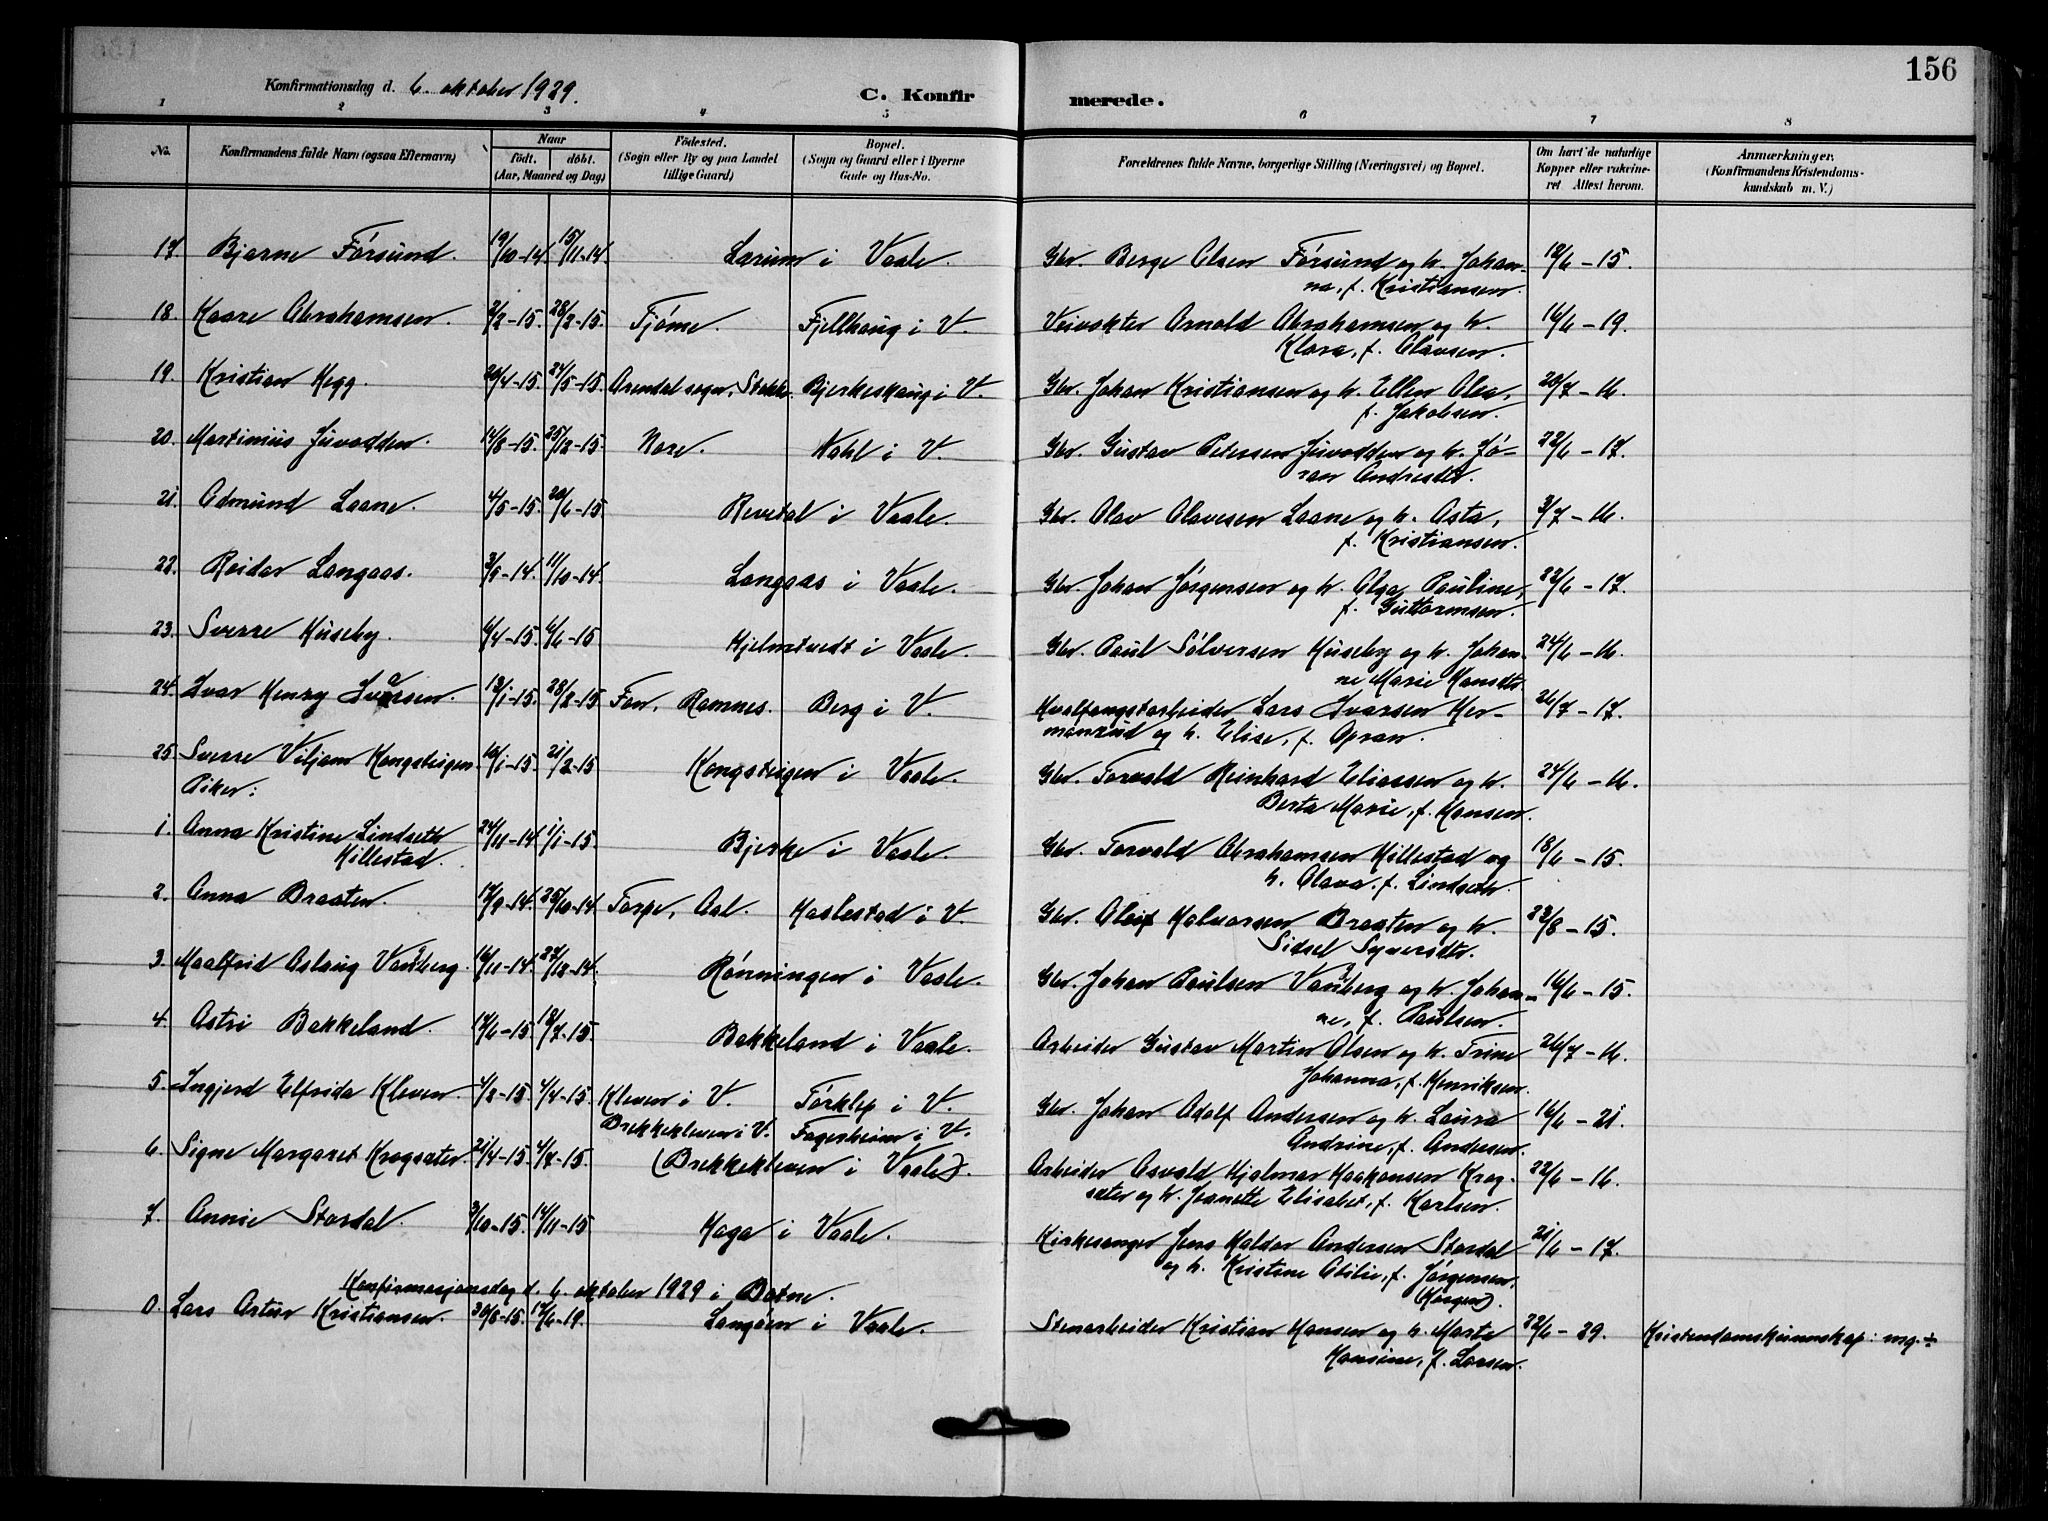 156
Konfirmationsdag d. 6. oktober 1929.
C. Konfirmerede.
1 2 3 4 5 6 7 8
No. Konfirmandens fulde Navn (ogsaa Efternavn) Naar födt. döbt. (Aar, Maaned og Dag) Födested. (Sogn eller By og paa Landet tillige Gaard) Bopæl. (Sogn og Gaard eller i Byerne Gade og Hus-No. Forældrenes fulde Navne, borgerlige Stilling (Næringsvei) og Bopæl. Om havt de naturlige Kopper eller vakcineret. Attest herom. Anmærkninger. (Konfirmandens Kristendomskundskab m. V.)
17 Bjarne Førsund. 19/10-14. 15/11-14. Larum i Vaale. Gbr. Berge Olsen Førsund og h. Johan-
na, f. Kristiansen. 18/6-15.
18. Kaare Abrahamsen. 2/2-15. 28/2-15. Tjøme. Fjellhaug i V. Veivokter Arnold Abrahamsen og h.
Klara, f. Olavsen. 16/6-19.
19. Kristian Hegg. 20/4-15. 24/5-15. Arendal sogn, Stokke. Bjerkeskaug i V. Gbr. Johan Kristiansen og h. Ellen Olea,
f. Jakobsen. 20/7-16.
20. Martinius Juvodden. 14/8-15. 25/12-15. Nore. Hahl i V. Gbr. Gustav Petersen Juvodden og h. Jø-
ran Andresdtr. 22/6-17.
21. Edmund Laane. 4/5-15. 20/6-15. Revetal i Vaale. Gbr. Olav Olavesen Laane og h. Asta,
f. Kristiansen. 3/7-16.
22. Reidar Langaas. 3/9-14. 11/10-14. Langaas i Vaale. Gbr. Johan Jørgensen og h. Olga Pauline,
f. Guttormsen. 22/6-17.
23. Sverre Huseby. 6/4-15. 6/6-15 Hjelmtvedt i Vaale. Gbr. Paul Sølversen Huseby og h. Johan-
ne Marie Hansdtr. 24/6-16.
24. Ivar Henry Ivarsen. 13/1-15. 28/2-15 Fon, Ramnes. Berg i V. Hvalfangstarbeider Lars Ivarsen Her-
manrud og h. Elise, f. Apran. 26/7-17.
25. Sverre Viljam Kongsteigen 10/1-15. 21/2-15 Kongsteigen i Vaale. Gbr. Torvald Reinhard Eliassen og h.
Berta Marie, f. Hansen. 24/6-16.
Piker:
1. Anna Kristine Lindseth
Hillestad. 24/11-14. 1/1-15. Bjerke i Vaale. Gbr. Torvald Abrahamsen Hillestad og
h. Olava, f. Lindseth. 18/6-15.
2. Anna Braaten. 17/9-14. 25/10-14. Torpe, Aal. Haslestad i V. Gbr. Oleif Halvorsen Braaten og h.
Sidsel Syversdtr. 23/8-15.
3. Maalfrid Aslaug Vanberg. 16/11-14. 27/12-14. Rønningen i Vaale. Gbr. Johan Paulsen Vanberg og h. Johan-
ne, f. Paulsen. 16/6-15.
4. Astri Bakkeland. 17/6-15. 18/7-15. Bakkeland i Vaale. Arbeider Gustav Martin Olsen og h. Trine
Johanna, f. Henriksen. 26/7-16.
5. Ingjerd Elfrida Kleven. 4/2-15. 4/4-15. Kleven i V. Førklep i V. Gbr. Johan Adolf Andersen og h. Laura
Andrine, f. Andersen. 16/6-21.
6. Signe Margaret Krogsæter. 21/4-15. 4/7-15. Brekkekleven i V. Fagerheim i V.
(Brekkekleven i Vaale). Arbeider Osvald Hjalmar Haakonsen Krog-
sæter og h. Jeanette Elisabet, f. Karlsen. 22/6-16.
7. Annie Stordal. 3/10-15. 14/11-15 Haga i Vaale. Kirkesanger Jens Haldor Andersen Stordal
og h. Kristine Otilie, f. Jørgensen.
(Haugen). 21/6-17.
Konfirmasjonsdag d. 6. oktober 1929 i Botne.
0. Lars Artur Kristiansen. 30/8-15. 17/6-19. Langøen i Vaale. Stenarbeider Kristian Hansen og h. Marte
Hansine, f. Larsen. 22/6-29. Kristendomskunnskap: mg.÷